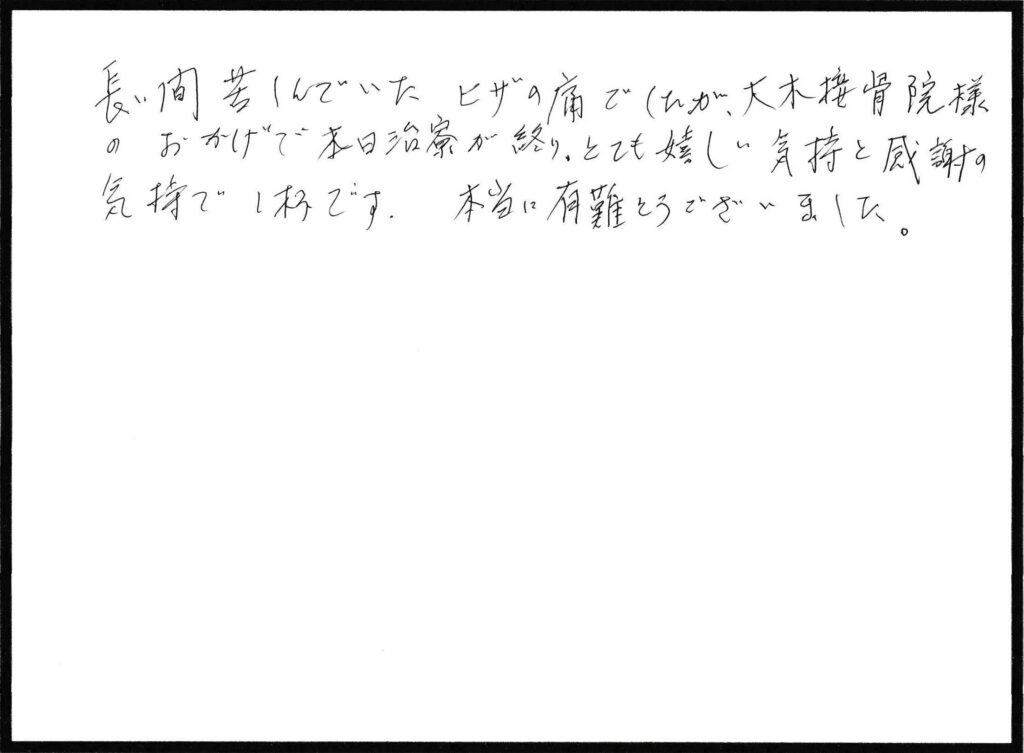 長い間苦しんでいた ヒザの痛でしたが、大木接骨院様
のおかげで本日治寮が終り、とても嬉しい気持と感謝の
気持で1杯です. 本当に有難とうございました。